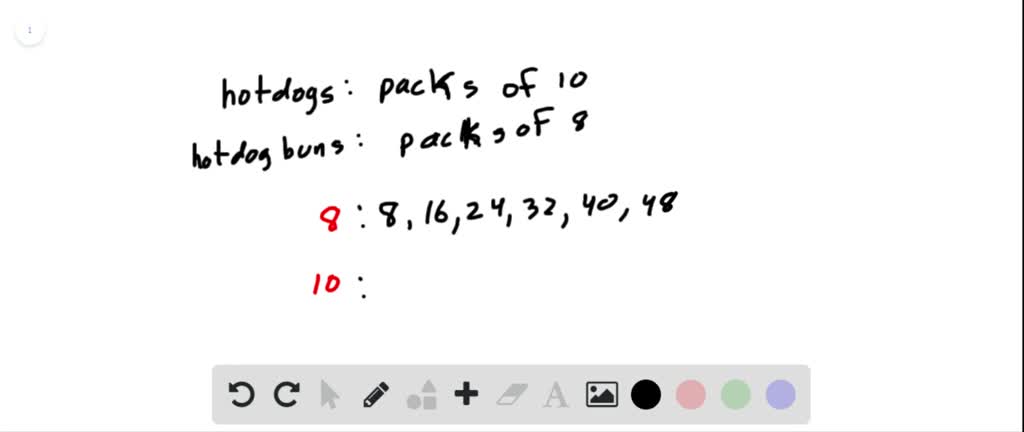 1
hotdogs: packs of 10
hotdog buns: packs of 8
8: 8, 16, 24, 32, 40, 48
10:
A